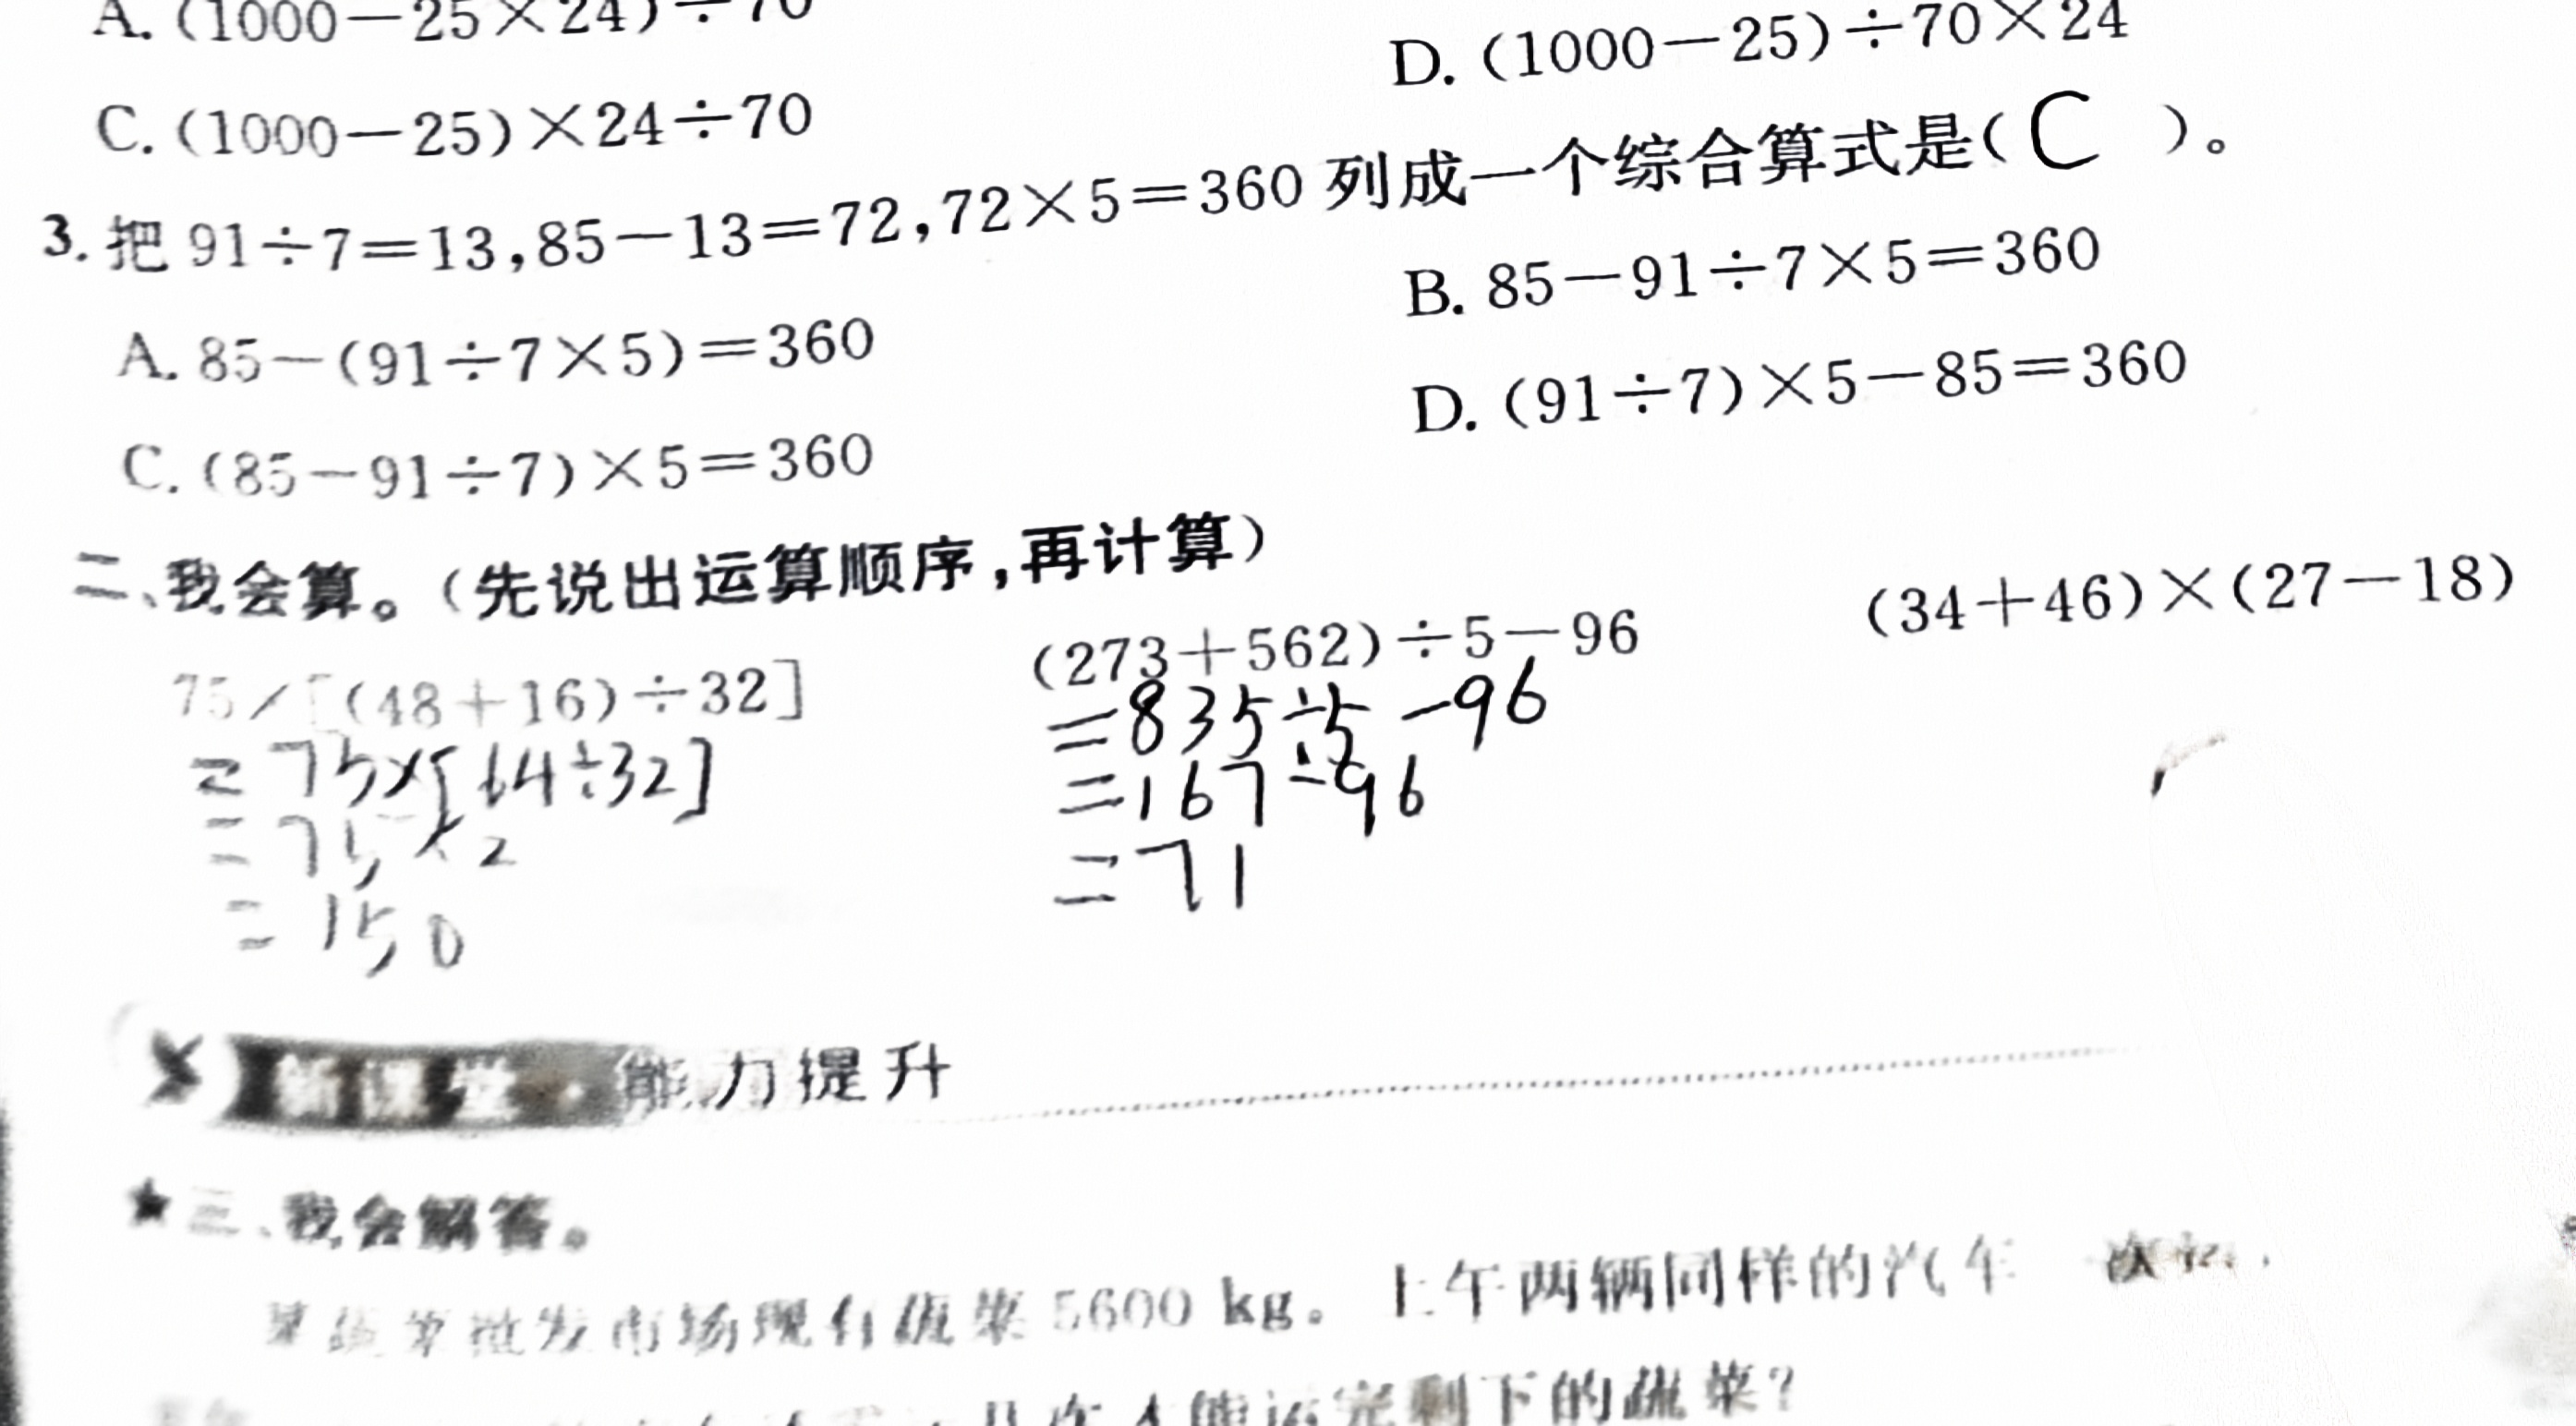 A. (1000－25×24)÷70
D. (1000－25)÷70×24
C. (1000－25)×24÷70
3. 把 91÷7＝13,85－13＝72,72×5＝360 列成一个综合算式是( C )。
A. 85－(91÷7×5)＝360
B. 85－91÷7×5＝360
C. (85－91÷7)×5＝360
D. (91÷7)×5－85＝360
二、我会算。(先说出运算顺序,再计算)
75×[(48＋16)÷32]
(273＋562)÷5－96
(34＋46)×(27－18)
=75×[64÷32]
=835÷5-96
=75×2
=167-96
=150
=71
能力提升
★三、我会解答。
发市场现有蔬菜 5600 kg。上午两辆同样的汽车
剩下的蔬菜?